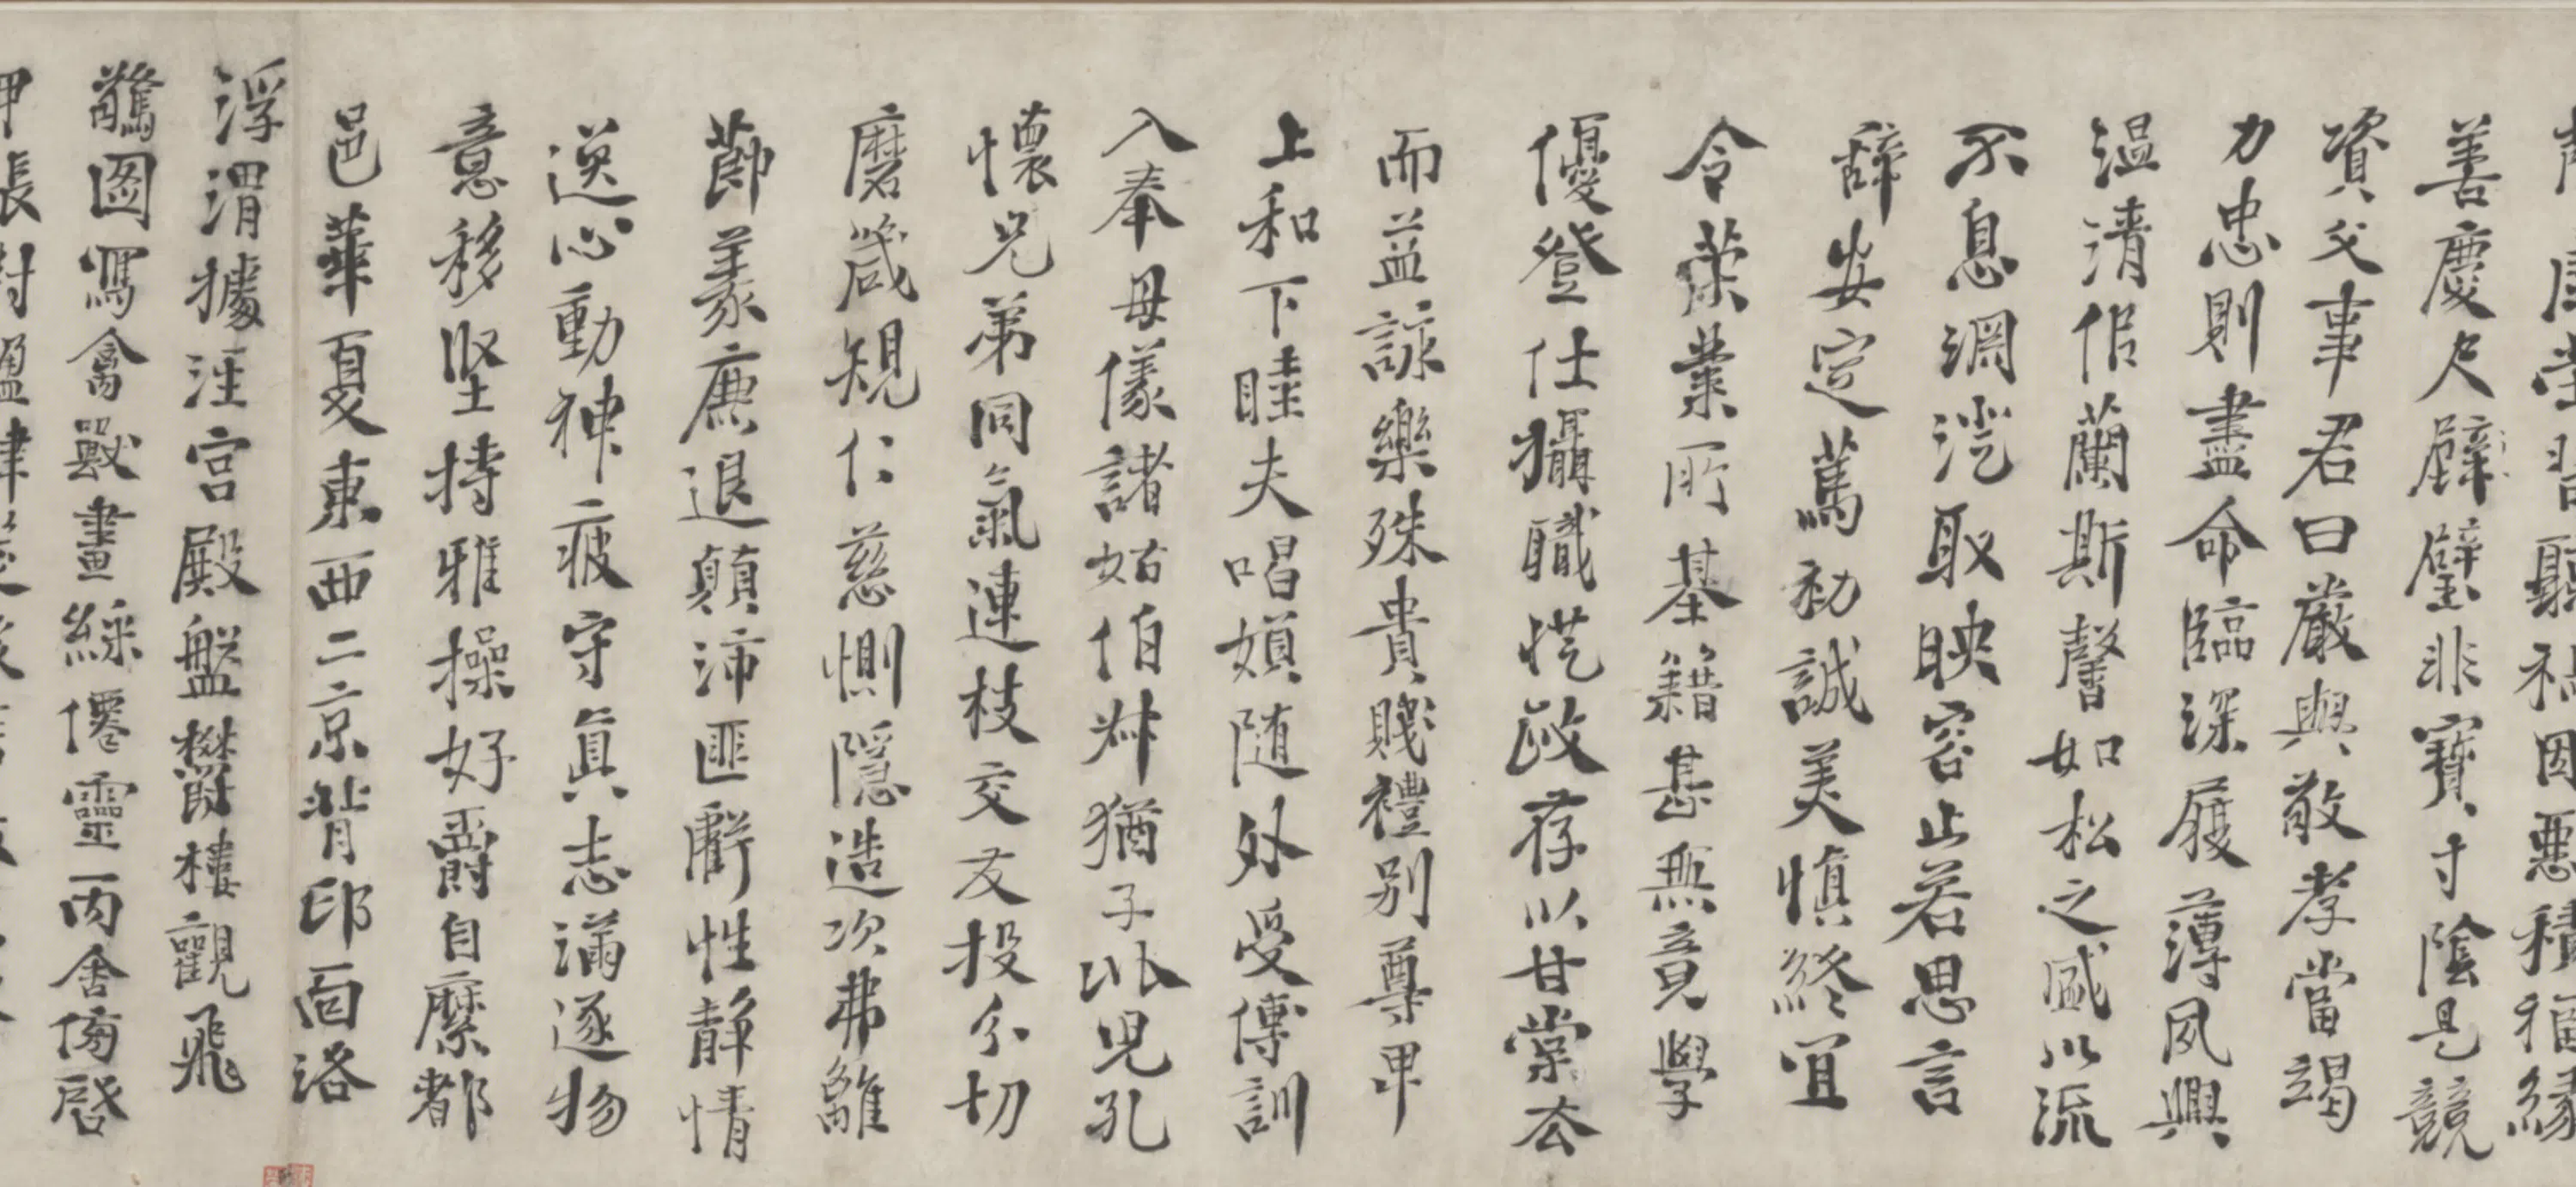 堂習聽禍因惡積福緣
善慶尺璧非寶寸陰是競
資父事君曰嚴與敬孝當竭
力忠則盡命臨深履薄夙興
温清佀蘭斯馨如松之盛以流
不息淵澄取映容止若思言
辭安定篤初誠美慎終宜
令榮業所基籍甚無竟學
優登仕攝職從政存以甘棠去
而益詠樂殊貴賤禮別尊卑
上和下睦夫唱婦随外受傅訓
入奉母儀諸姑伯叔猶子比兒孔
懷兄弟同氣連枝交友投分切
磨箴規仁慈惻隱造次弗離
節義廉退顛沛匪虧性静情
逸心動神疲守真志滿逐物
意移堅持雅操好爵自縻都
邑華夏東西二京背邙面洛
浮渭據涇宮殿盤鬱樓觀飛
驚圖寫禽獸畫綵僊靈丙舍傍啓
甲帳對楹肆筵